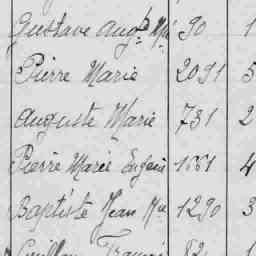 Gustave Aug.te 90 1
Pierre Marie 2091 5
Auguste Marie 731 2
Pierre Marie Eugène 1551 4
Baptiste Jean Mie 1290 3